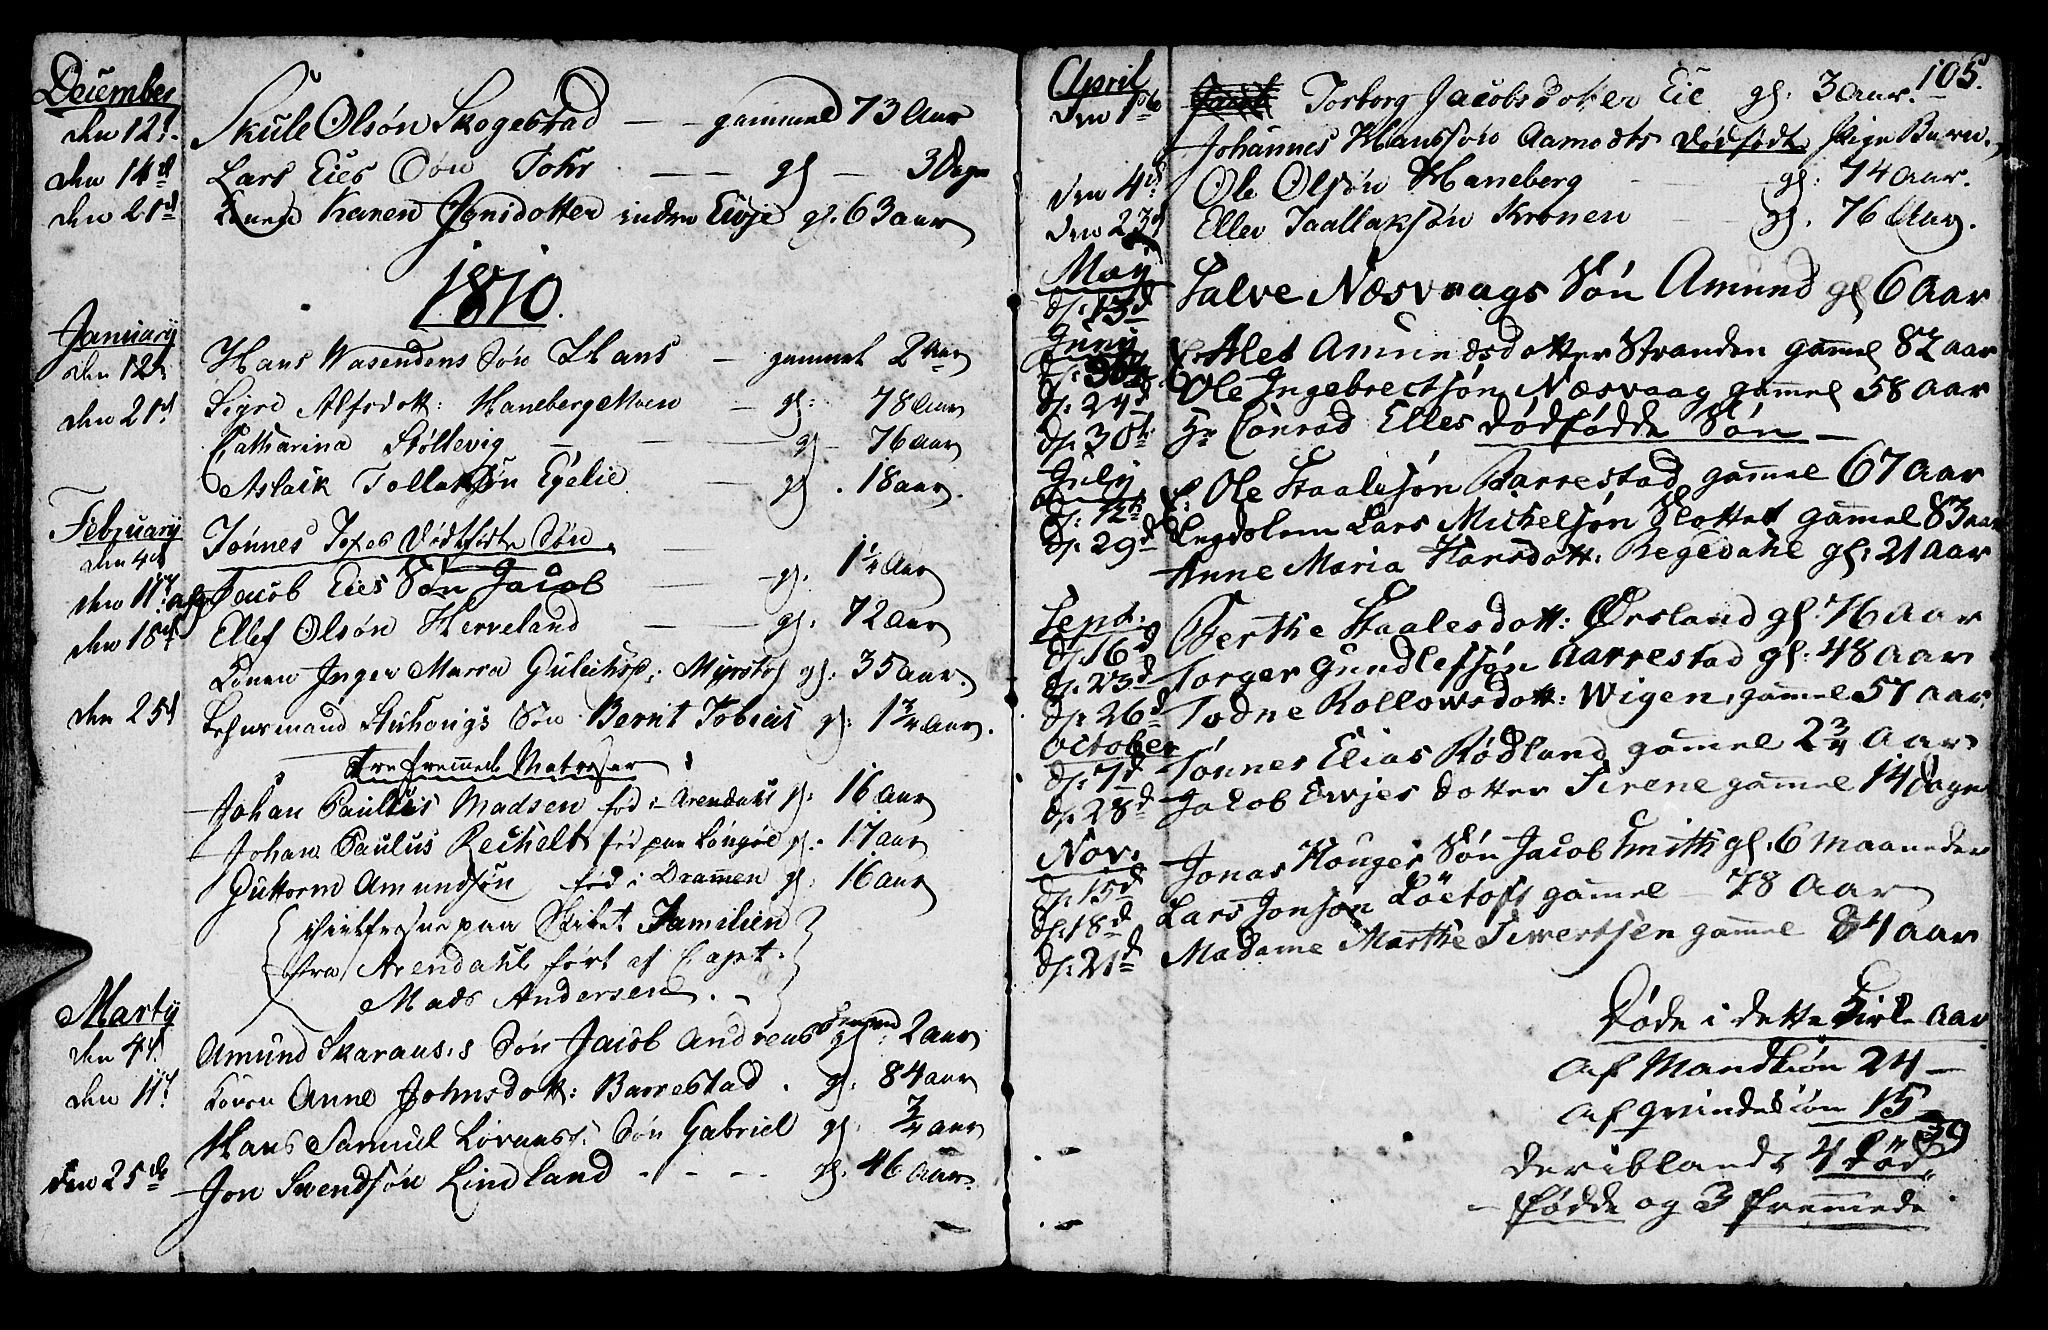 December
den 12t. Skule Olsøn Skogestad — — gammel 73 Aar
den 14d Lars Eies Søn Tohr — — gl — 3 Dage
den 21d Konen Karen Jonsdotter inden Ewje gl. 63 aar
1810.
January
den 12t Hans Wasendens Søn Hans — gammel 2 Aar
den 21d Sigre Alfsdott: Haneberg — gl: 78 Aar
Catharina Støllevig — — gl — 76 aar
Aslack Tollaksøn Egelie — gl. 18 aar.
February
den 4d Tönnes Dødfødte Søn
den 11t Jacob Eies Søn Jacob — gl. 1¼ Aar
den 18d Ellef Olsøn Herveland — gl: 72 Aar
Konen Inger Marra gl: 35 aar.
den 25d Søn Bernt Tobias gl: 1¾ Aar.
tre fremmede Matroser
Johan Paulus Madsen fød i Arendahl gl: 16 Aar
Johan Paulus Rechelt fød paa Longøe gl. 17 aar
Guttorm Amundsøn fød i Drammen gl: 16 aar
paa Skibet Familien
fra Arendahl ført af Capt:
Mads Andersen.
Marty
den 4d. Amund Skaraas's Søn Jacob Andreas gl: 2 aar
den 11t Konen Anne Johnsdott: Barrestad. gl: 84 aar
Hans Samuel Søn Gabriel gl. ¾ aar
den 25de Jon Svendsøn Lindland - - - gl. 46 aar.
105.
April
den 1t Torborg Jacobsdotter Eie gl: 3 aar.
Johannes Hanssøn Aamodts dødfødte Pige Barn.
den 4d Ole Olsøn Haneberg gl: 74 aar.
den 23d Ellev Taallaksøn Kronen gl. 76 Aar.
May
d: 13d Salve Næsvaags Søn Amund gl 6 Aar
Juny
Alet Amundsdotter Stranden gammel 82 aar
d: 24d Ole Ingebrectsøn Næsvaag gammel 58 aar
d: 30t Hr Conrad Elles dødfødde Søn —
July
Ole Staalesøn Barrestad gammel 67 aar
d: 12t Lars Michelsøn Slottet gammel 83 aar
d: 29d Anne Maria Hansdott: Regedahl gl: 21 aar
Sept:
d: 16d Berthe Staalesdott: Ørsland gl: 76 aar
d: 23d Torger Gundlefsøn Aarrestad gl: 48 aar
d: 26d Todne Rollowsdott: Wigen, gammel 57 aar
October
d: 7d Tønnes Elias Rødland gammel 2¾ Aar
d: 28d Jacob Ewjes dotter Sirene gammel 14 dage
Nov:
d: 15d Jonas Houges Søn Jacob Smith gl. 6 maaneder
d: 18d Lars Jonsøn Löctoft gammel — 78 aar
d: 21d Madame Marthe Siwertsen gammel 84 aar
Døde i dette Kirke aar
af Mandkiøn 24 —
af qvindekiøn 15
39
deriblandt 4 død-
fødde og 3 fremmede